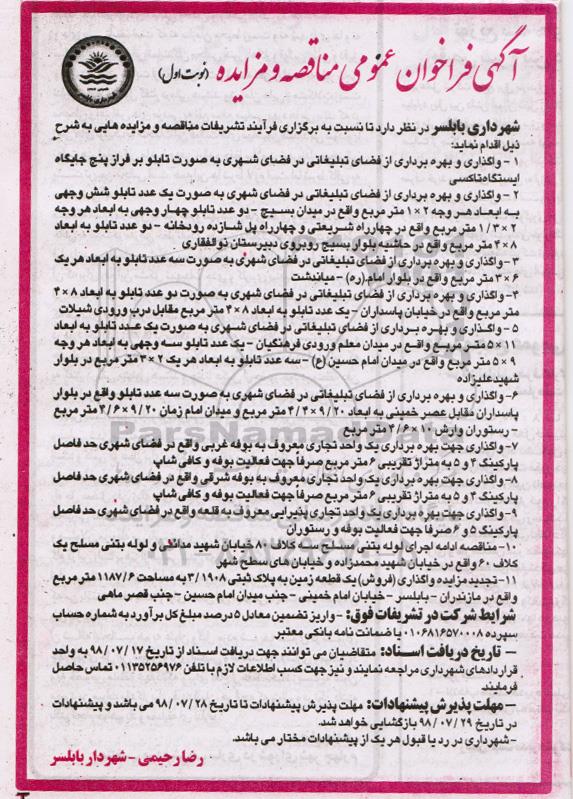 آگهی فراخوان عمومی مناقصه و مزایده (نوبت اول)
شهرداری بابلسر در نظر دارد تا نسبت به برگزاری فرآیند تشریفات مناقصه و مزایده هایی به شرح
ذیل اقدام نماید:
۱- واگذاری و بهره برداری از فضای تبلیغاتی در فضای شهری به صورت تابلو بر فراز پنج جایگاه
ایستگاه تاکسی
۲- واگذاری و بهره برداری از فضای تبلیغاتی در فضای شهری به صورت یک عدد تابلو شش وجهی
به ابعاد هر وجه ۲×۱ متر مربع واقع در میدان بسیج - دو عدد تابلو چهار وجهی به ابعاد هر وجه
۲×۱/۳ متر مربع واقع در چهارراه شریعتی و چهارراه پل شازده رودخانه - دو عدد تابلو به ابعاد
۸×۴ متر مربع واقع در حاشیه بلوار بسیج روبروی دبیرستان ذوالفقاری
۳- واگذاری و بهره برداری از فضای تبلیغاتی در فضای شهری به صورت سه عدد تابلو به ابعاد هر یک
۶×۳ متر مربع واقع در بلوار امام (ره) - میاندشت
۴- واگذاری و بهره برداری از فضای تبلیغاتی در فضای شهری به صورت دو عدد تابلو به ابعاد ۸×۴
متر مربع واقع در خیابان پاسداران - یک عدد تابلو به ابعاد ۸×۴ متر مربع مقابل درب ورودی شیلات
۵- واگذاری و بهره برداری از فضای تبلیغاتی در فضای شهری به صورت یک عدد تابلو به ابعاد
۱۱×۵ متر مربع واقع در میدان معلم ورودی فرهنگیان - یک عدد تابلو سه وجهی به ابعاد هر وجه
۹×۵ متر مربع واقع در میدان امام حسین (ع) - سه عدد تابلو به ابعاد هر یک ۲×۳ متر مربع در بلوار
شهید علیزاده
۶- واگذاری و بهره برداری از فضای تبلیغاتی در فضای شهری به صورت سه عدد تابلو واقع در بلوار
پاسداران مقابل عصر خمینی به ابعاد ۹/۲۰×۴/۴ متر مربع و میدان امام زمان ۹/۲۰×۴/۶ متر مربع
- رستوران وارش ۱۰×۴/۶ متر مربع
۷- واگذاری جهت بهره برداری یک واحد تجاری معروف به بوفه غربی واقع در فضای شهری حد فاصل
پارکینگ ۴ و ۵ به متراژ تقریبی ۶ متر مربع صرفاً جهت فعالیت بوفه و کافی شاپ
۸- واگذاری جهت بهره برداری یک واحد تجاری معروف به بوفه شرقی واقع در فضای شهری حد فاصل
پارکینگ ۴ و ۵ به متراژ تقریبی ۶ متر مربع صرفاً جهت فعالیت بوفه و کافی شاپ
۹- واگذاری جهت بهره برداری یک واحد تجاری پذیرایی معروف به قلعه واقع در فضای شهری حد فاصل
پارکینگ ۵ و ۶ صرفاً جهت فعالیت بوفه و رستوران
۱۰- مناقصه ادامه اجرای لوله بتنی مسلح سه کلاف ۸۰ خیابان شهید مداقی و لوله بتنی مسلح یک
کلاف ۶۰ واقع در خیابان شهید محمدزاده و خیابان های سطح شهر
۱۱- تجدید مزایده واگذاری (فروش) یک قطعه زمین به پلاک ثبتی ۳/۱۹۰۸ به مساحت ۱۱۸۷/۶ متر مربع
واقع در مازندران - بابلسر - خیابان امام خمینی - جنب میدان امام حسین - جنب قصر ماهی
شرایط شرکت در تشریفات فوق: - واریز تضمین معادل ۵ درصد مبلغ کل برآورد به شماره حساب
سپرده ۰۱۰۶۸۱۶۵۷۰۰۰۸ یا ضمانت نامه بانکی معتبر
- تاریخ دریافت اسناد: متقاضیان می توانند جهت دریافت اسناد از تاریخ ۹۸/۰۷/۱۷ به واحد
قراردادهای شهرداری مراجعه نمایند و نیز جهت کسب اطلاعات لازم با تلفن ۰۱۱۳۵۲۵۶۹۷۶ تماس حاصل
فرمایند
- مهلت پذیرش پیشنهادات: مهلت پذیرش پیشنهادات تا تاریخ ۹۸/۰۷/۲۸ می باشد و پیشنهادات
در تاریخ ۹۸/۰۷/۲۹ بازگشایی خواهد شد.
- شهرداری در رد یا قبول هر یک از پیشنهادات مختار می باشد.
رضا رحیمی - شهردار بابلسر